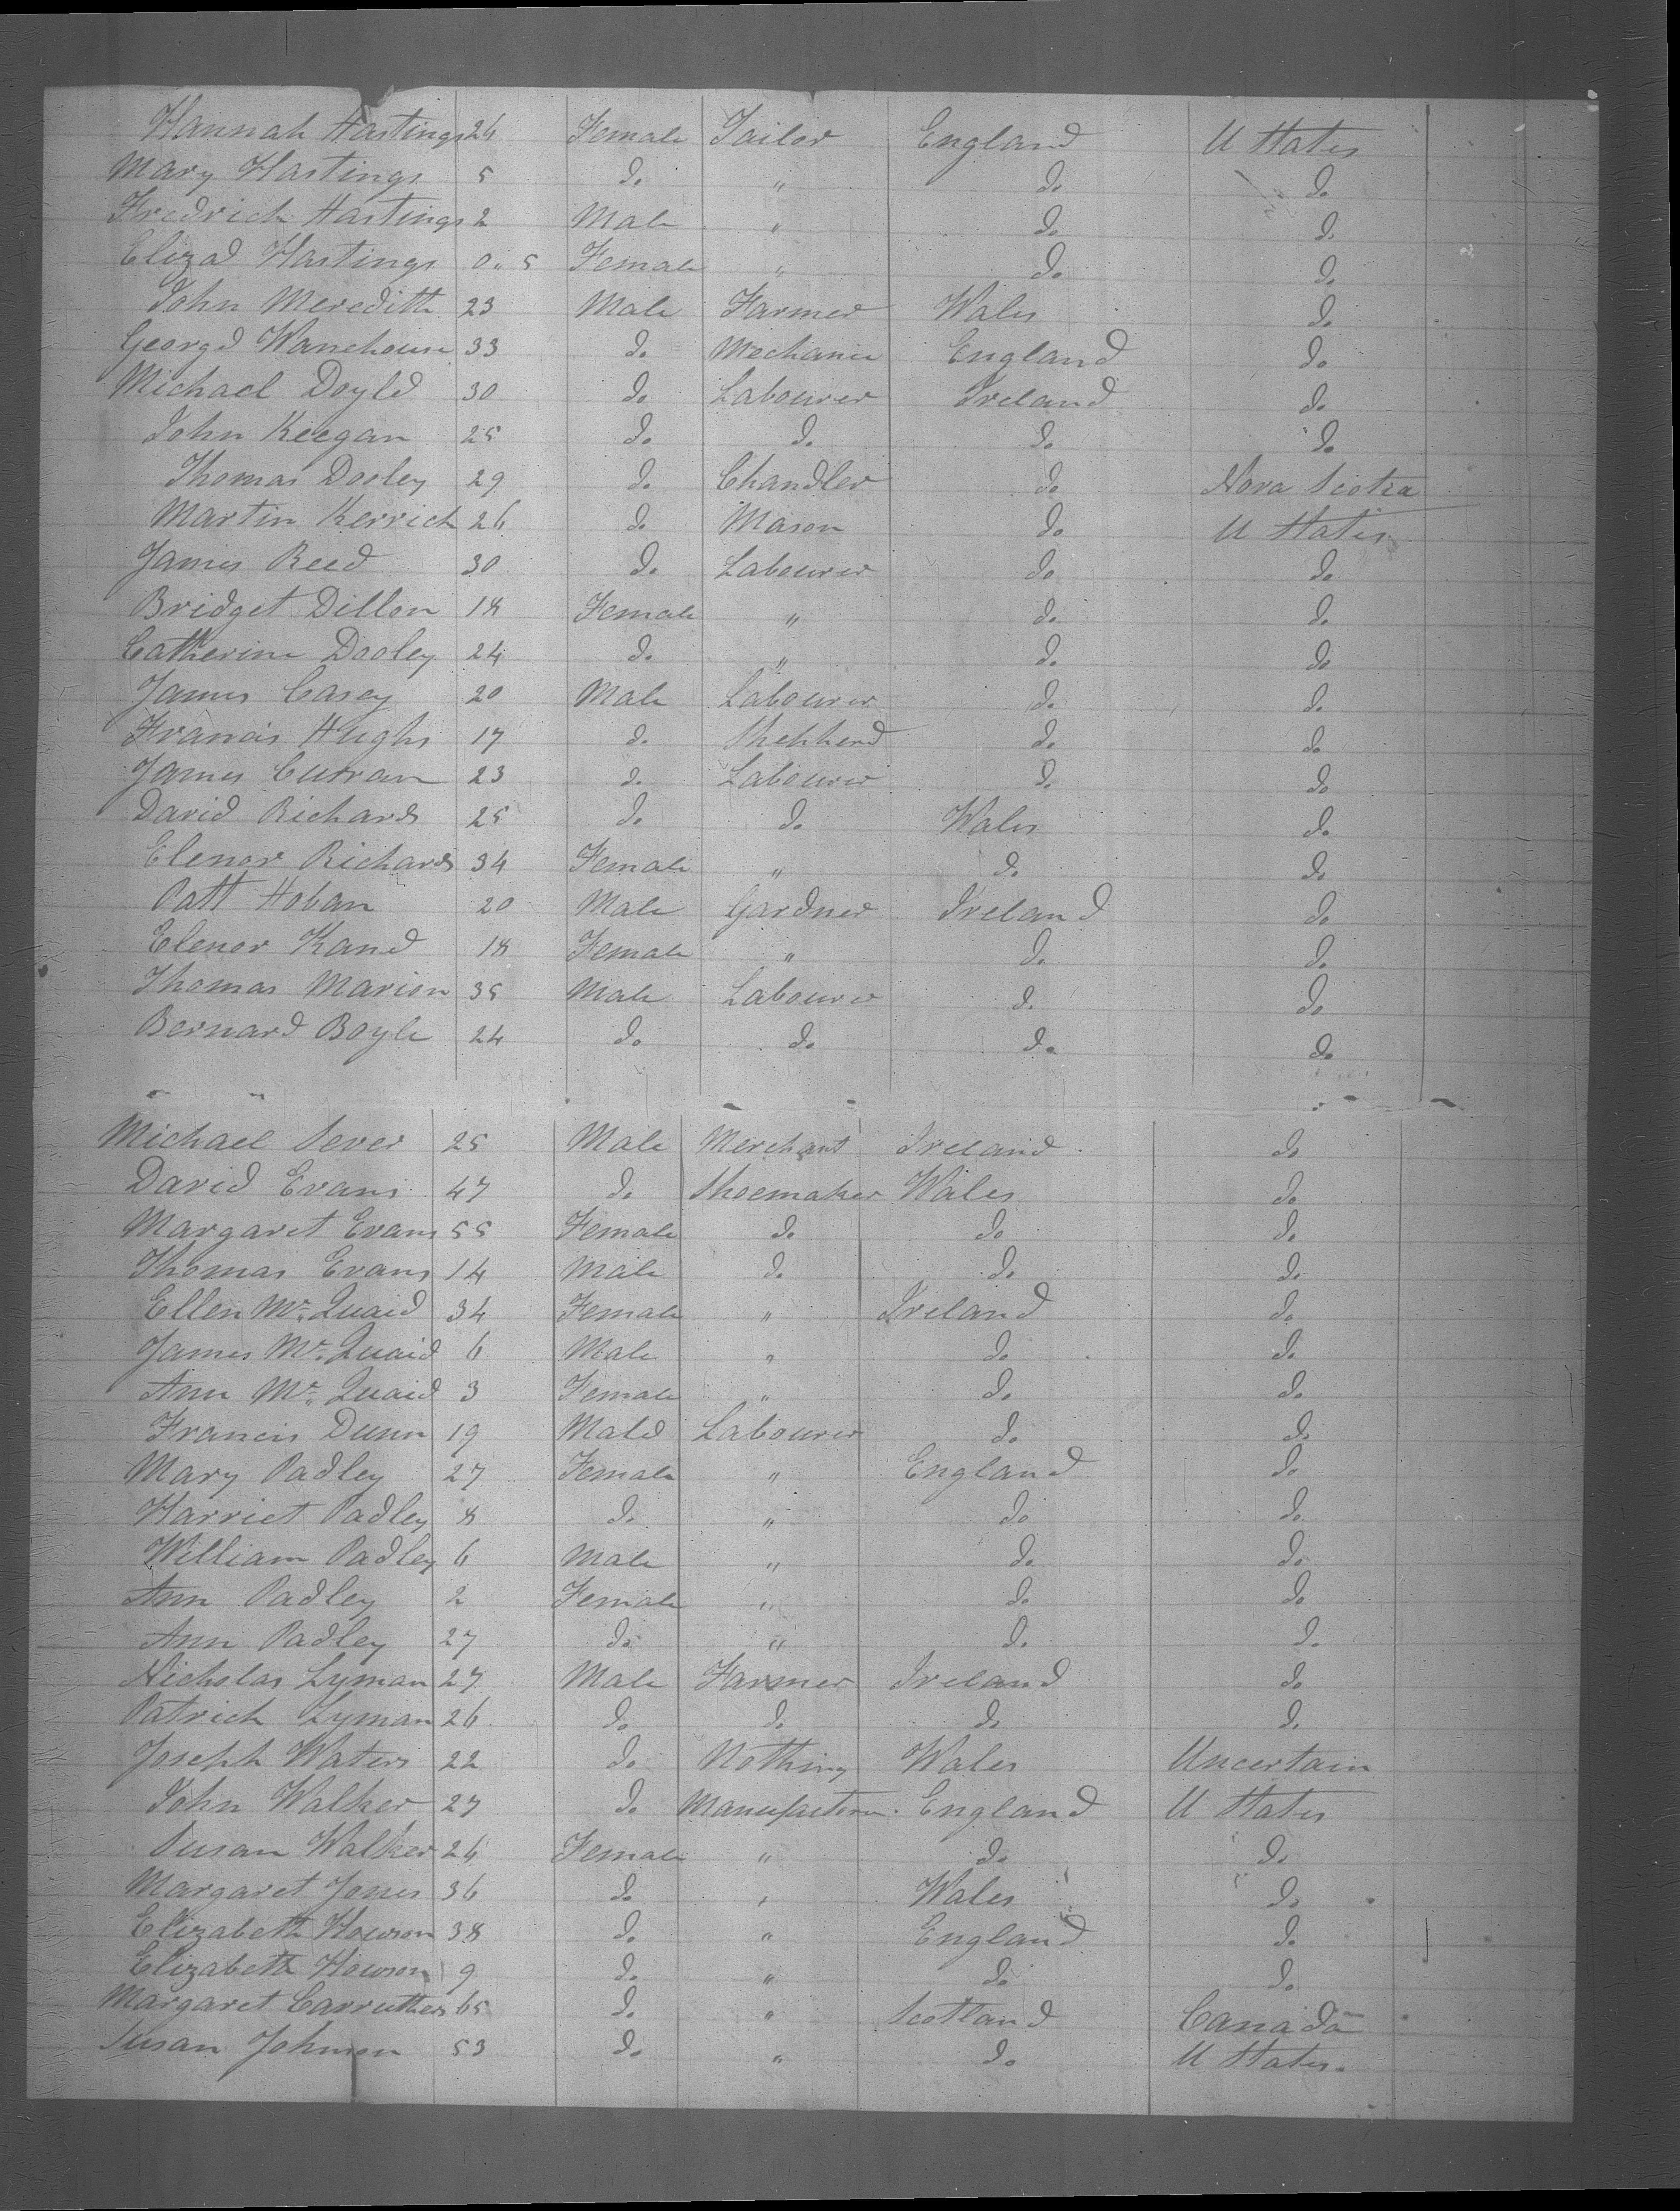 Hannah Hastings 26 Female Tailor England U States
Mary Hastings 5 do " do do
Fredrick Hastings 2 Male " do do
Eliza Hastings 0.. 5 Female " do do
John Meredith 23 Male Farmer Wales do
George Warehouse 33 do Mechanic England do
Michael Doyle 30 do Labourer Ireland do
John Keegan 25 do do do do
Thomas Dooley 29 do Chandler do Nova Scotia
Martin Kerrick 26 do Mason do U States
James Reed 30 do Labourer do do
Bridget Dillon 18 Female " do do
Catherine Dooley 24 do " do do
James Casey 20 Male Labourer do do
Francis Hughs 17 do Shepherd do do
James Curran 23 do Labourer do do
David Richards 25 do do Wales do
Elenor Richards 34 Female " do do
Patt Hoban 20 Male Gardner Ireland do
Elenor Kane 18 Female " do do
Thomas Marion 35 Male Labourer do do
Bernard Boyle 24 do do do do
Michael Sever 25 Male Merchant Ireland do
David Evans 47 do Shoemaker Wales do
Margaret Evans 55 Female do do do
Thomas Evans 14 Male do do do
Ellen Mc Quaid 34 Female " Ireland do
James Mc Quaid 6 Male " do do
Ann Mc Quaid 3 Female " do do
Francis Dunn 19 Male Labourer do do
Mary Padley 27 Female " England do
Harriet Padley 8 do " do do
William Padley 6 Male " do do
Ann Padley 2 Female " do do
Ann Padley 27 do " do do
Nicholas Lyman 27 Male Farmer Ireland do
Patrick Lyman 26 do do do do
Joseph Waters 22 do Nothing Wales Uncertain
John Walker 27 do England U States
Susan Walker 26 Female " do do
Margaret Jones 36 do " Wales do
Elizabeth Howson 38 do " England do
Elizabeth Howson 9 do " do do
Margaret Carruthers 65 do " Scotland Canada
Susan Johnson 53 do " do U States